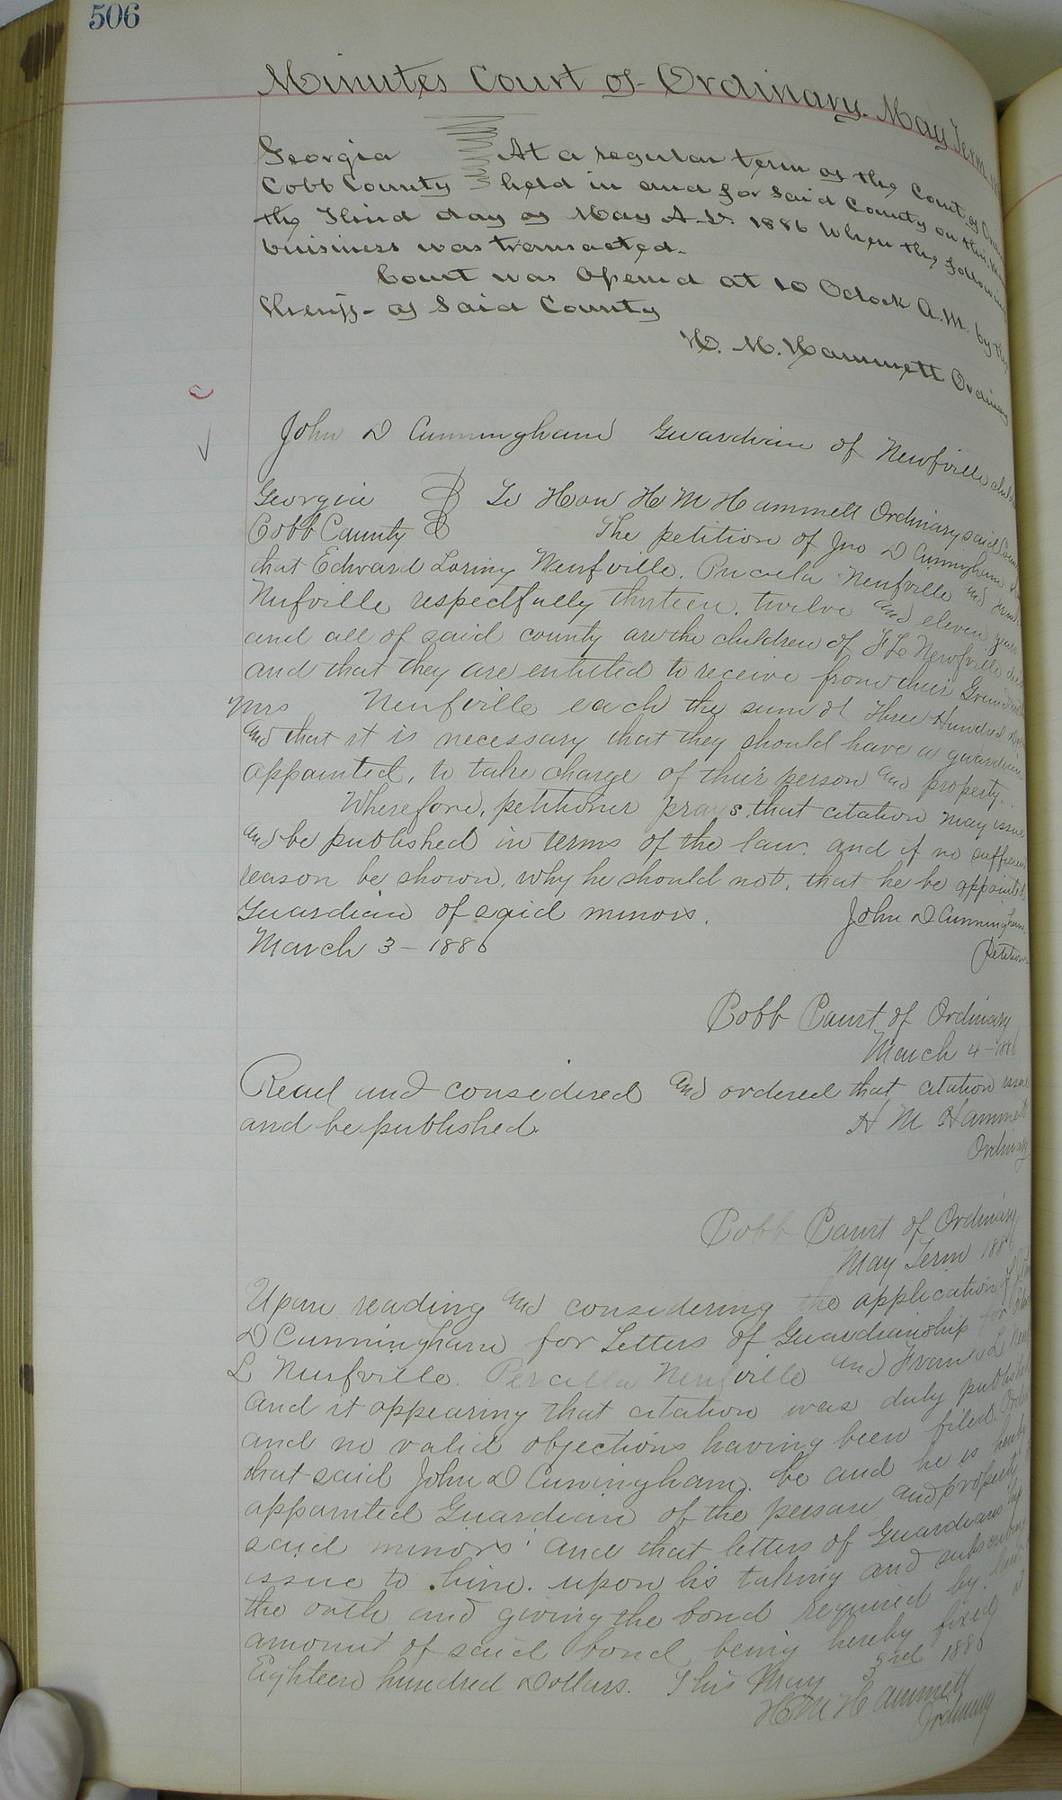 506
Minutes Court of Ordinary. May Term
Georgia At a regular term of the Court of
Cobb County held in and for Said County on this
the Third day of May A.D. 1886 When the following
buisiness was transacted.
Court was Opened at 10 Oclock A.M. by the
Sheriff of Said County
H. M. Hammett Ordinary
John D Cunningham Guardian of Neufville
Georgia To Hon H M Hammett Ordinary said
Cobb County The petition of Jno D Cunningham
that Edward Loring Neufville. Neufville and
Nufville respectfully thirteen. twelve and eleven years
and all of said county are the children of Neufville
and that they are entitled to receive from their
Mrs Neufville each the sum of Three Hundred
and that it is necessary that they should have a guardian
appointed, to take charge of their person and property.
Wherefore, petitioner prays, that citation may issue
and be published in terms of the law. and if no sufficient
reason be shown, why he should not, that he be appointed
Guardian of said minors. John D Cunningham
March 3 - 1886 petitioner
Cobb Court of Ordinary
March 4 - 1886
Read and considered and ordered that citation issue
and be published. H M Hammett
Ordinary
Cobb Court of Ordinary
May Term 1886
Upon reading and considering the application of
D Cunningham for Letters of Guardianship for
L Neufville. Percilla Neufville and Frank L
and it appearing that citation was duly published
and no valid objections having been filed.
that said John D Cuningham. be and he is hereby
appointed Guardian of the person and property
said minors and that letters of Guardianship
issue to him. upon his taking and subscribing
the oath and giving the bond required by law
amount of said bond being hereby fixed at
Eighteen hundred Dollars. This May 3rd 1886
H M Hammett
Ordinary